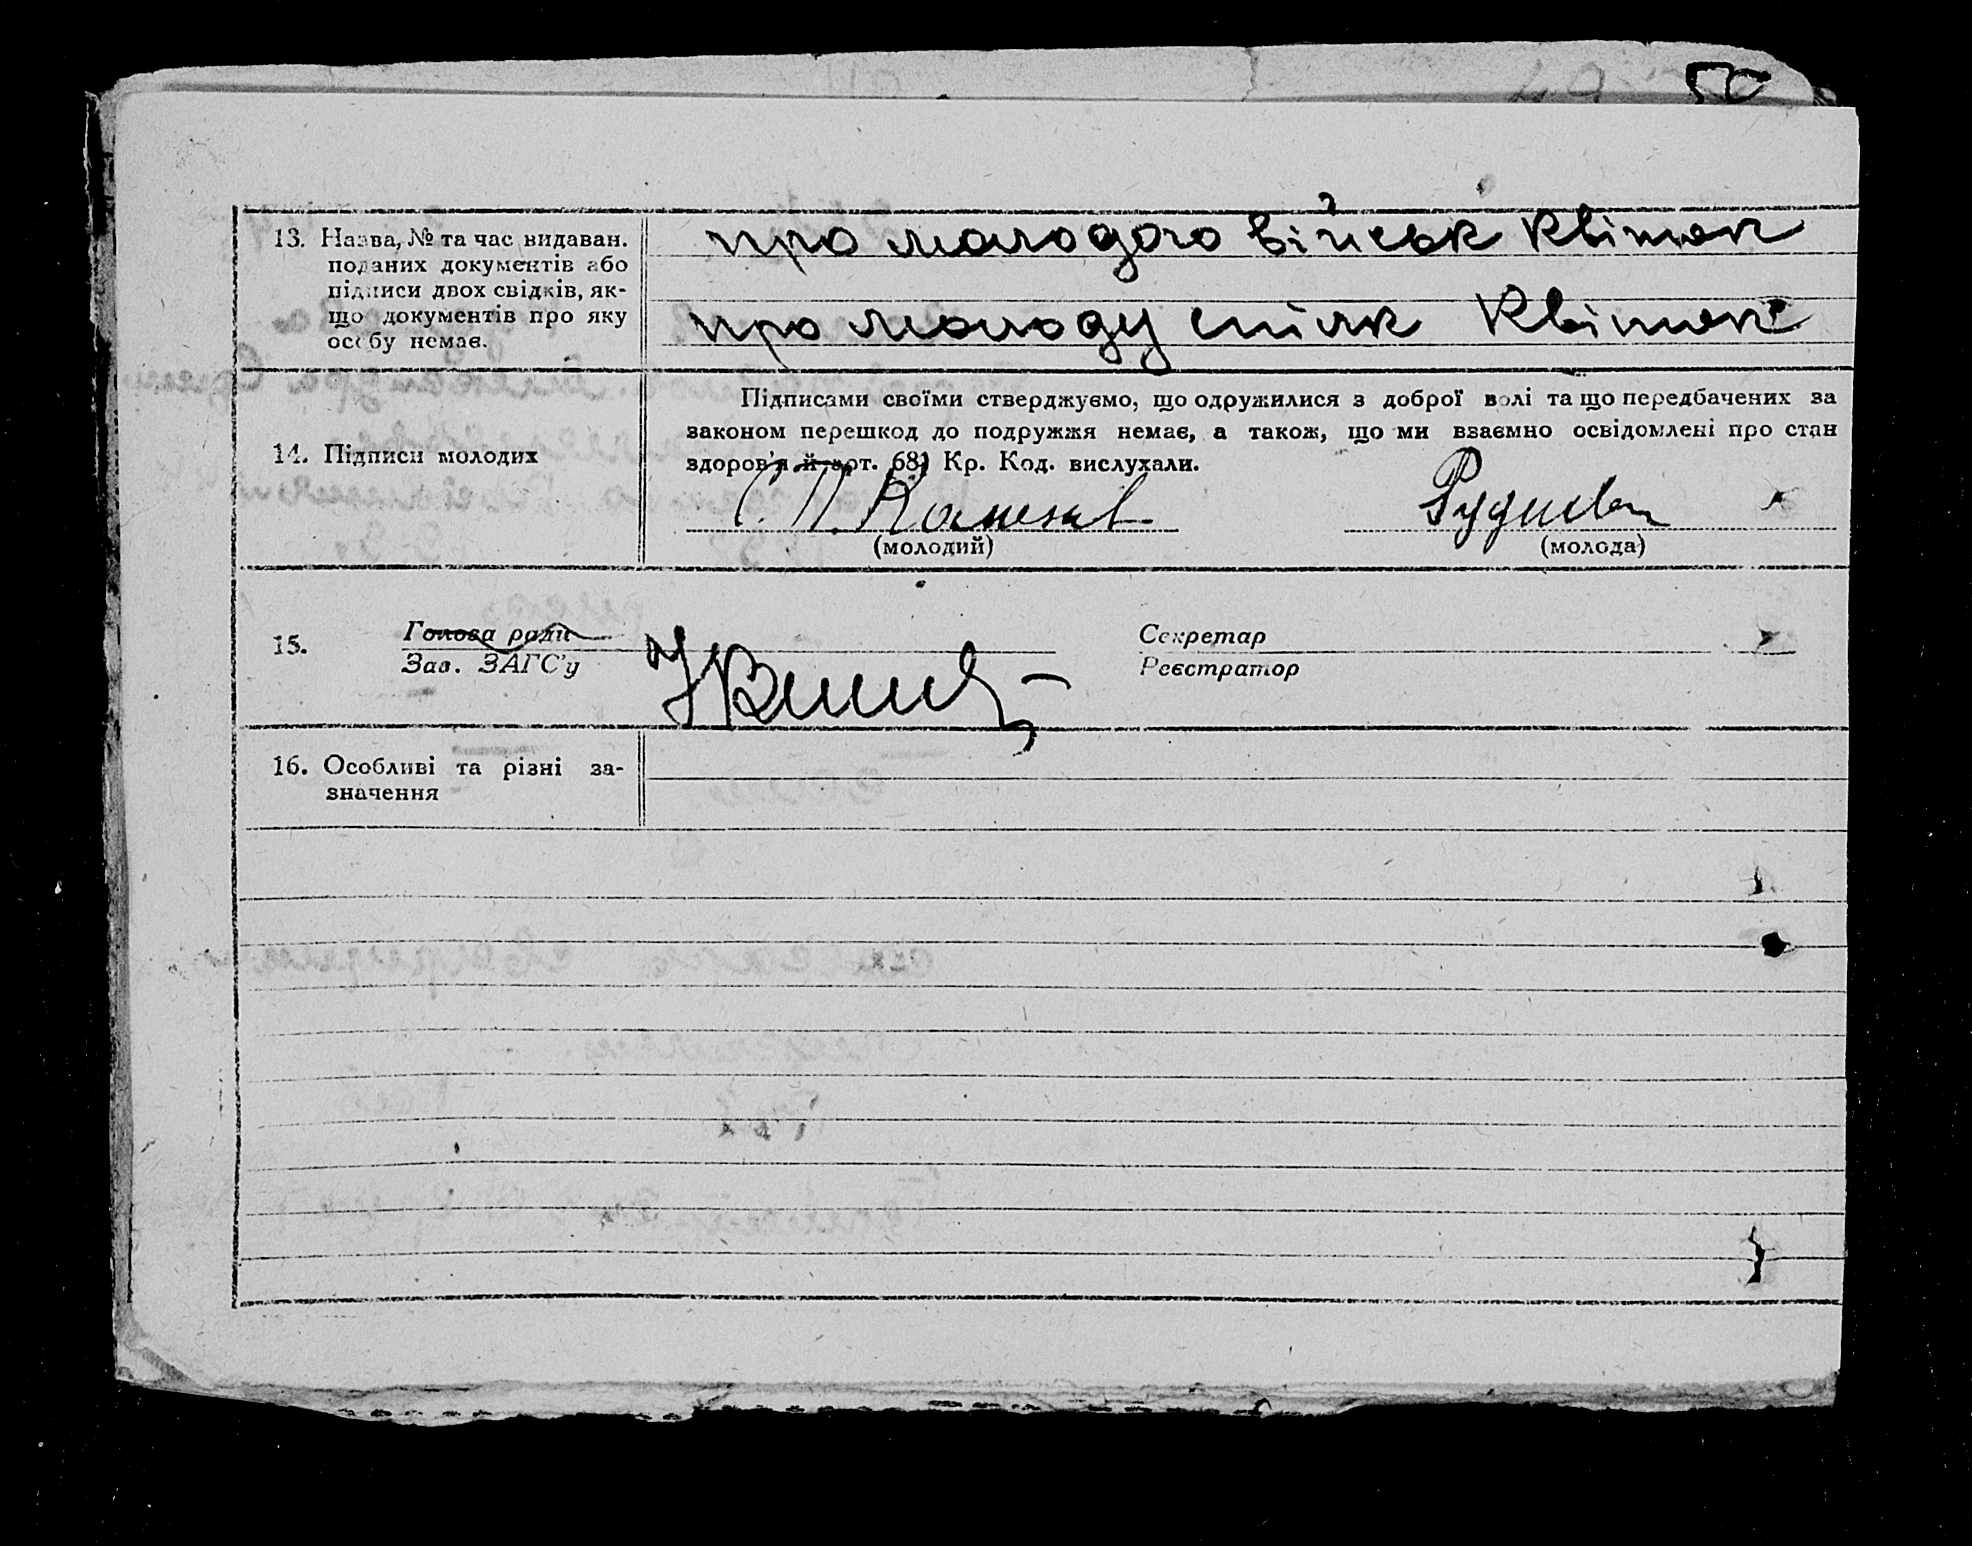 50
13. Назва, № та час видаван.
поданих документів або
підписи двох свідків, як-
що документів про яку
особу немає.
про молодого військ квиток
про молоду спілк квиток
14. Підписи молодих
Підписами своїми стверджуємо, що одружилися з доброї волі та що передбачених за
законом перешкод до подружжя немає, а також, що ми взаємно освідомлені про стан
здоров'я й арт. 681 Кр. Код. вислухали.
С. П.
(молодий)
(молода)
15.
Голова ради
Зав. ЗАГС'у
Секретар
Реєстратор
16. Особливі та різні за-
значення